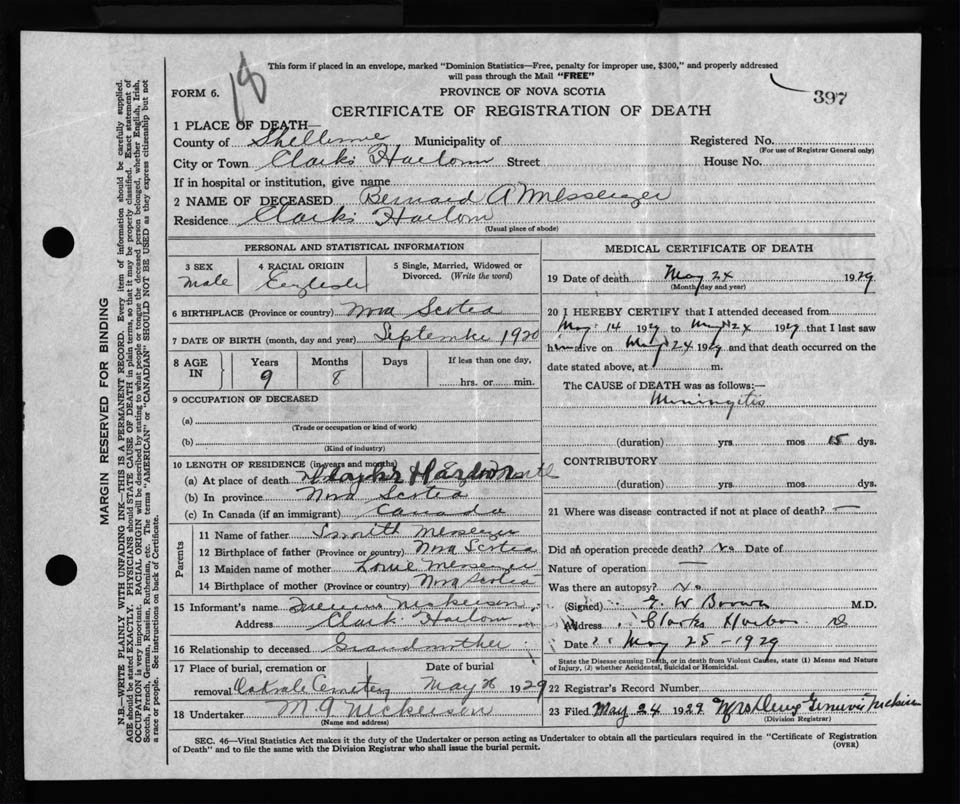 18
This form if placed in an envelope, marked "Dominion Statistics—Free, penalty for improper use, $300," and properly addressed
will pass through the Mail "FREE"
FORM 6.
PROVINCE OF NOVA SCOTIA
397
CERTIFICATE OF REGISTRATION OF DEATH
1 PLACE OF DEATH—
County of Shelburne Municipality of Registered No.
(For use of Registrar General only)
City or Town Clarks Harbour Street House No.
If in hospital or institution, give name
2 NAME OF DECEASED Bernard A Messenger
Residence Clarks Harbour
(Usual place of abode)
PERSONAL AND STATISTICAL INFORMATION
3 SEX
Male
4 RACIAL ORIGIN
English
5 Single, Married, Widowed or
Divorced. (Write the word)
6 BIRTHPLACE (Province or country) Nova Scotia
7 DATE OF BIRTH (month, day and year) September 1920
8 AGE
IN
Years
9
Months
8
Days
If less than one day,
hrs. or min.
9 OCCUPATION OF DECEASED
(a)
(Trade or occupation or kind of work)
(b)
(Kind of industry)
10 LENGTH OF RESIDENCE (in years and months)
(a) At place of death Harbor
(b) In province Nova Scotia
(c) In Canada (if an immigrant) Canada
Parents
11 Name of father Smith Messenger
12 Birthplace of father (Province or country) Nova Scotia
13 Maiden name of mother Messenger
14 Birthplace of mother (Province or country) Nova Scotia
15 Informant's name Nickerson
Address Clark Harbour
16 Relationship to deceased Grandmother
17 Place of burial, cremation or
removal Cemetery
Date of burial
May 26 1929
18 Undertaker M. A. Nickerson
(Name and address)
MEDICAL CERTIFICATE OF DEATH
19 Date of death May 24 1929
(Month day and year)
20 I HEREBY CERTIFY that I attended deceased from
May 14 1929 to May 24 1929 that I last saw
him alive on May 24 1929 and that death occurred on the
date stated above, at m.
The CAUSE of DEATH was as follows:—
Miningitis
(duration) yrs mos 15 dys.
CONTRIBUTORY
(duration) yrs. mos. dys.
21 Where was disease contracted if not at place of death? —
Did an operation precede death? No Date of
Nature of operation —
Was there an autopsy? No
(Signed) W Brown M.D.
Address Clarks Harbor
Date May 25 - 1929
State the Disease causing Death, or in death from Violent Causes, state (1) Means and Nature
of Injury, (2) whether Accidental, Suicidal or Homicidal.
22 Registrar's Record Number
23 Filed May 24 1929
(Division Registrar)
SEC. 46—Vital Statistics Act makes it the duty of the Undertaker or person acting as Undertaker to obtain all the particulars required in the "Certificate of Registration
of Death" and to file the same with the Division Registrar who shall issue the burial permit.
(OVER)
MARGIN RESERVED FOR BINDING
N.B.—WRITE PLAINLY WITH UNFADING INK—THIS IS A PERMANENT RECORD. Every item of information should be carefully supplied.
AGE should be stated EXACTLY. PHYSICIANS should STATE CAUSE OF DEATH in plain terms, so that it may be properly classified. Exact statement of
OCCUPATION is very important. RACIAL ORIGIN will be described by stating to what people or tongue the deceased person belonged, whether English, Irish,
Scotch, French, German, Russian, Ruthenian, etc. The terms "AMERICAN" or "CANADIAN" SHOULD NOT BE USED as they express citizenship but not
a race or people. See instructions on back of Certificate.